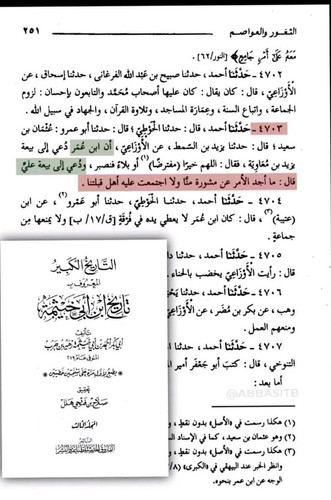 الثغور والعواصم
٢٥١
مَعَهُ عَلَىٰ أَمْرٍ جَامِعٍ﴾ [النور/٦٢].
٤٧٠٢ - حَدَّثَنَا أحمد، حدثنا صبيح بن عَبْد الله الفرغاني، حدثنا إسحاق، عن
الأَوْزَاعِيّ، قال: كان يقال: كان عليها أصحاب مُحَمَّد والتابعون بإحسان: لزوم
الجماعة، واتباع السنة، وعِمَارَة المساجد، وتلاوة القرآن، والجهاد في سبيل الله.
٤٧٠٣ - حَدَّثَنَا أحمد، قال: حدثنا الْحَوْطِيّ، قال: حدثنا أبو عمرو: عُثْمَان بن
سعيد؛ قال: حدثنا يزيد بن السَّمط، عن الأَوْزَاعِيّ، أن ابن عُمَر دُعِي إلى بيعة
يزيد بن مُعَاوِيَة، فقال: اللهم خيرا (مفترضا) (١) أو بلاءً فنصبر، ودُعي إلى بيعة عليٍّ
قال: ما أجد الأمر عن مشورة منَّا ولا اجتمعت عليه أهل قبلتنا.
٤٧٠٤ - حَدَّثَنَا أحمد، حدثنا الْحَوْطِيّ، حدثنا أبو عمرو (٢)، عن ابن
(عتيبة) (٣)، قال: كان ابن عُمَر لا يعطي يده في فُرْقَةٍ [ق/١٧/ب] ولا يمنعها من
جماعةٍ.
٤٧٠٥ - حَدَّثَنَا أحمد
قال: رأيت الأَوْزَاعِيّ يخضب بالحناء
٤٧٠٦ - حَدَّثَنَا أحمد
وهب، عن بكر بن مُضَر، عن الأَوْزَاعِيّ
ومنعهم العمل.
٤٧٠٧ - حَدَّثَنَا أحمد
التنوخي، قال: كتب أبو جَعْفَر أمير
أما بعد:
(١) هكذا رسمت في «الأصل» بدون نقط
(٢) وهو عثمان بن سعيد، كما في الإسناد
(٣) هكذا رسمت في «الأصل» بدون نقط
وانظر الخبر عند البيهقي في «الكبرى» (٨/
من وجه آخر عن ابن عمر بنحوه.
التاريخ الكبير
المعروف بـ
تاريخ ابن أبي خيثمة
تأليف
أبي بكر أحمد بن أبي خيثمة زهير بن حرب
المتوفى سنة ٢٧٩
تحقيق
صلاح بن فتحي هلل
المجلد الثالث
الناشر
الفاروق الحديثة للطباعة والنشر
@ABBASITE